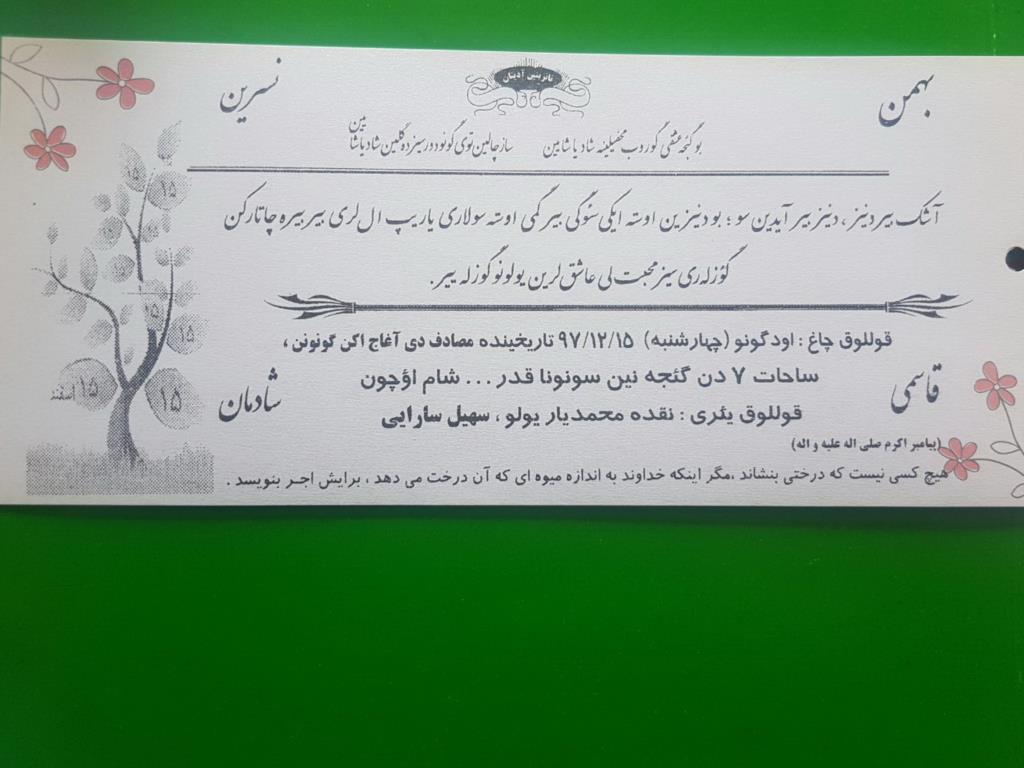 نازنین آدینان
بهمن
نسرین
بو گئجه عشقی گوروب محفیلینه شاد یاشایین
ساز چالین توی گونودور سیزده گلین شاد یاشایین
آشک بیر دنیز ، دنیز بیر آیدین سو ؛ بو دنیزین اوسته ایکی سئوگی بیر گمی اوسته سولاری یاریپ ال لری بیر بیره چاتارکن
گؤزله ری سیز محبت لی عاشق لرین یولونو گوزله ییر.
قوللوق چاغ : اود گونو (چهارشنبه) ۹۷/۱۲/۱۵ تاریخینده مصادف دی آغاج اکن گونونن ،
ساحات ۷ دن گئجه نین سونونا قدر ... شام اؤچون
قوللوق یئری : نقده محمدیار یولو ، سهیل سارایی
قاسمی
شادمان
(پیامبر اکرم صلی اله علیه و اله)
هیچ کسی نیست که درختی بنشاند ،مگر اینکه خداوند به اندازه میوه ای که آن درخت می دهد ، برایش اجر بنویسد .
۱۵
۱۵
۱۵
۱۵
۱۵
۱۵
۱۵ اسفند
۱۵